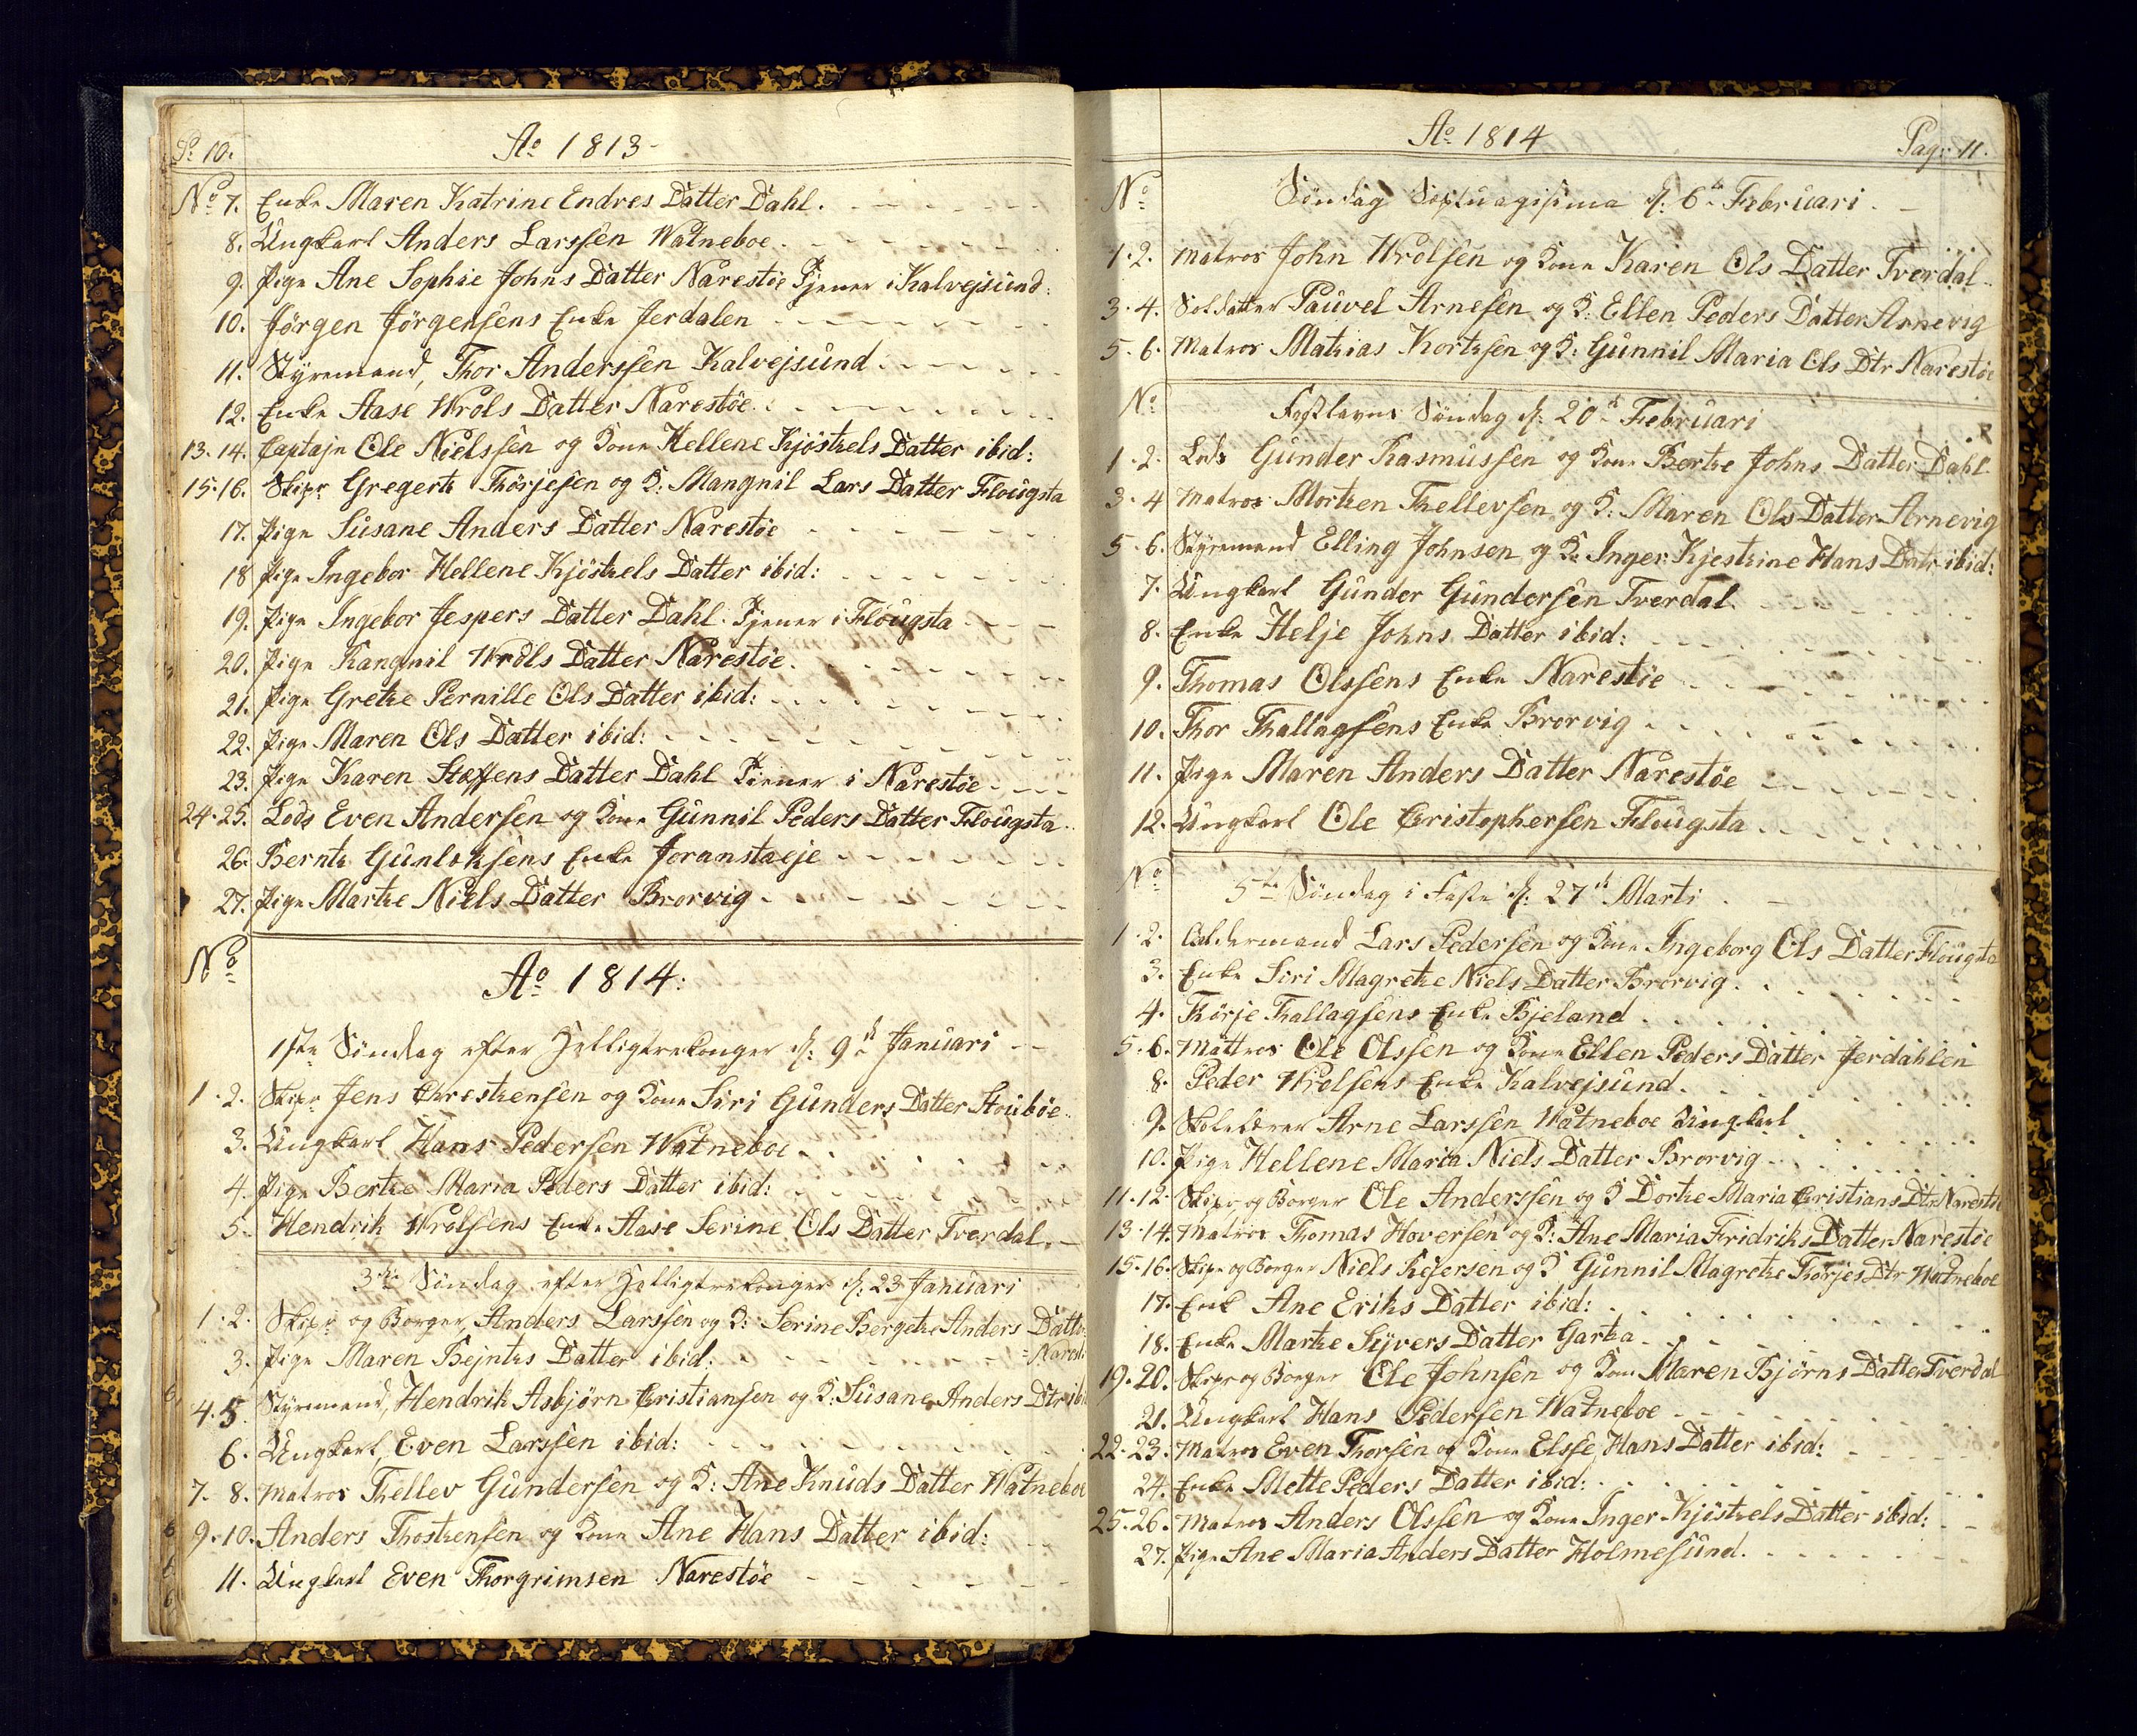 P: 10.
Ao 1813
No 7. Enke Maren Katrine Endres Datter Dahl.
8. Ungkarl Anders Larssen Watneboe.
9. Pige Ane Sophie Johns Datter Narestöe Tjener i Kalvejsund.
10. Jörgen Jörgensens Enke Jerdalen
11. Styremand, Thor Anderssen Kalvejsund
12. Enke Aase Wrols Datter Narestöe.
13. 14. Captajn Ole Nielssen og Kone Hellene Kjöstels Datter ibid:
15. 16. Skipr Gregerts Thörjesen og K: Mangnil Lars Datter Flougsta
17. Pige Susane Anders Datter Narestöe
18 Pige Ingebor Hellene Kjöstels Datter ibid:
19. Pige Ingebor Jespers Datter Dahl. Tjener i Flougsta
20. Pige Rangnil Wrols Datter Narestöe.
21. Pige Grethe Pernille Ols Datter ibid:
22. Pige Maren Ols Datter ibid:
23. Pige Karen Steffens Datter Dahl Tiener i Narestöe
24. 25. Lods Even Andersen og Kone Gunnil Peders Datter Flougsta.
26. Bernts Enke Joranstaeje
27. Pige Marthe Niels Datter Brorvig
No
Ao 1814:
1ste Söndag efter Helligtrekonger d: 9de Januari
1. 2. Skipr Jens Chrestensen og Kone Siri Gunders Datter Stouböe
3. Ungkarl Hans Pedersen Watneboe.
4. Pige Berthe Maria Peders Datter ibid:
5. Hendrik Wrolsens Enke Aase Serine Ols Datter Tverdal.
3die Söndag efter Helligtrekonger d: 23 Januari
1. 2. Skipr og Borger, Anders Larssen og K: Serine Bergethe Anders Datter
3. Pige Maren Bejnths Datter ibid: = Naresti
4. 5. Styremand, Hendrik Asbjörn Cristiansen og K: Susane Anders Dtr ibi
6. Ungkarl, Even Larssen ibid:
7. 8. Matros Thellev Gundersen og K: Ane Knuds Datter Watneboe
9. 10. Anders Thostensen og Kone Ane Hans Datter ibid:
11. Ungkarl Even Thorgrimsen Narestöe
Ao 1814
Pag: 11.
No Söndag Septuagisima d: 6te Februari
1. 2. Matros John Wrolsen og Kone Karen Ols Datter Tverdal
3. 4. Soldatter Pauvel Arnesen og K: Ellen Peders Datter Arnevig
5. 6. Matros Mathias Korthsen og K: Gunnil Maria Ols Dtr Narestöe
No Fastlavns Söndag d: 20de Februari
1. 2. Lods Gunder Rasmussen og Kone Berthe Johns Datter Dahl
3. 4 Matros Morthen Thellevsen og K: Maren Ols Datter Arnevig
5. 6. Styremand Elling Johnsen og K: Inger Kjestine Hans Datr ibid:
7. Ungkarl Gunder Gundersen Tverdal.
8. Enke Helje Johns Datter ibid:
9. Thomas Olssens Enke Narestöe
10. Thor Thallagsens Enke Brorvig
11. Pige Maren Anders Datter Narestöe
12. Ungkarl Ole Cristophersen Flougsta
No 5te Söndag i Faste d: 27de Marti
1. 2. Oldermand Lars Pedersen og Kone Ingeborg Ols Datter Flougsta
3. Enke Siri Magrethe Niels Datter Brorvig.
4. Thörje Thallagsens Enke Bjeland
5. 6. Mattros Ole Olssen og Kone Ellen Peders Datter Jerdahlen
8. Peder Wrolsens Enke Kalvejsund.
9. Skolelærer Arne Larssen Watneboe Ungkarl
10. Pige Hellene Maria Niels Datter Brorvig
11. 12. Skipr og Borger Ole Anderssen og K Dorthe Maria Cristians Dtr Narestöe
13. 14. Matros Thomas Hoversen og K: Ane Maria Fridriks Datter Narestöe
15. 16. Skipr og Borger Niels Resersen og K Gunnil Magrethe Thörjes Dtr Watneboe
17. Enk Ane Eriks Datter ibid:
18. Enke Marthe Syvers Datter Gartha
19. 20. Skipr og Borger Ole Johnsen og Kone Maren Björns Datter Tverdal
21. Ungkarl Hans Pedersen Watneboe
22. 23. Matros Even Thorsen og Kone Elsse Hans Datter ibid:
24. Enke Mette Peders Datter ibid:
25. 26. Matros Anders Olssen og Kone Inger Kjöstels Datter ibid:
27. Pige Ane Maria Anders Datter Holmesund.